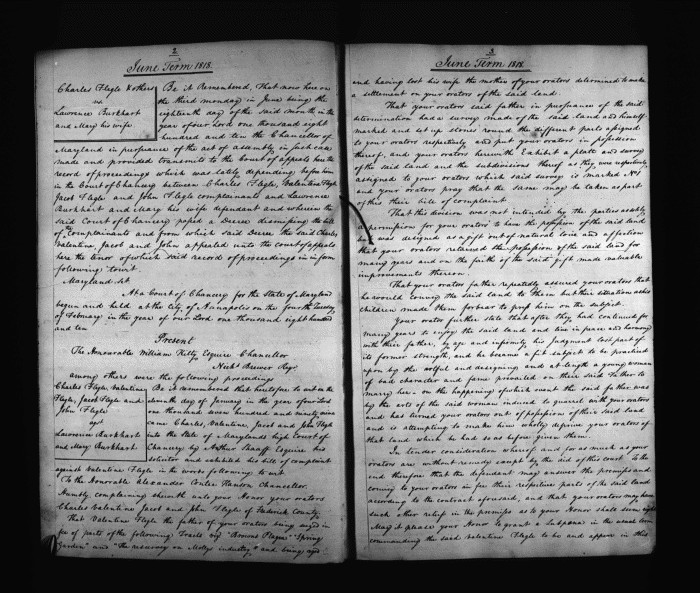 2
June Term 1818.
Charles Flegle & others
vs
Lawrence Burkhart
and Mary his wife
Be it Remembered, That now here on
the third monday in June being the
eighteenth day of the said month in the
year of our Lord one thousand eight
hundred and ten the Chancellor of
Maryland in pursuance of the act of assembly in such case
made and provided transmits to the Court of appeals here the
record of proceedings which was lately depending before him
in the Court of Chancery between Charles Flegle, Valentine Flegle
Jacob Flegle and John Flegle complainants and Lawrence
Burkhart and Mary his wife defendant and wherein the
said Court of Chancery passed a Decree dismissing the bill
of complainants and from which said Decree the said Charles
Valentine, Jacob and John appealed unto the court of appeals
here the tenor of which said record of proceedings is in form
following to wit.
Maryland Sct
At a Court of Chancery for the State of Maryland
begun and held at the city of Annapolis on the fourth Tuesday
of February in the year of our Lord one thousand eight hundred
and ten
Present
The Honourable William Kilty Esquire Chancellor
Nichs Brewer Regr
among others were the following proceedings
Charles Flegle, Valentine
Flegle, Jacob Flegle and
John Flegle
agst
Lawrence Burkhart
and Mary Burkhart
Be it remembered that heretofore to wit on the
eleventh day of January in the year of our Lord
one thousand seven hundred and ninety nine
came Charles, Valentine, Jacob and John Flegle
into the State of Marylands high Court of
Chancery by Arthur Shaaff Esquire his
solicitor and exhibited his bill of complaint
against Valentine Flegle in the words following to wit
To the Honorable Alexander Contee Hanson Chancellor
Humbly complaining sheweth unto your Honor your orators
Charles Valentine Jacob and John Flegle of Frederick County.
That Valentine Flegle the father of your orators being seized in
fee of parts of the following Tracts viz "Browns Plague" "Spring
Garden" and "The resurvey on Mollys industry" and being aged
3
June Term 1818.
and having lost his wife the mother of your orators determined to make
a settlement on your orators of the said land.
That your orators said father in pursuance of the said
determination had a survey made of the said land and himself
marked and set up stones round the different parts assigned
to your orators respectively and put your orators in possession
thereof, and your orators herewith Exhibit a platt and survey
of the said land and the subdivisions thereof as they were respectively
assigned to your orators which said survey is marked No 1
and your orators pray that the same may be taken as part
of this their bill of complaint
That this division was not intended by the parties as only
a permission for your orators to have the possession of the said land
but was designed as a gift out of natural love and affection
that your orators retained the possession of the said land for
many years and on the faith of the said gift made valuable
improvements thereon.
That your orators father repeatedly assured your orators that
he would convey the said land to them but their situation as his
children made them forbear to push him on the subject.
Your orators further state that after they had continued for
many years to enjoy the said land and live in peace and harmony
with their father, by age and infirmity his Judgment lost part of
its former strength, and he became a fit subject to be practised
upon by the artful and designing and at length a young woman
of bad character and fame prevailed on their said Father to
marry her - on the happening of which event the said father was
by the arts of the said woman induced to quarrel with your orators
and has turned your orators out of possession of their said land
and is attempting to make him wholly deprive your orators of
that land which he had so as before given them.
In tender consideration whereof and for as much as your
orators are without remedy except by the aid of this court To the
end therefore that the defendant may answer the premises and
convey to your orators in fee their respective parts of the said land
according to the contract aforesaid, and that your orators may have
such other relief in the premises as to your Honor shall seem right
May it please your Honor to grant a Subpœna in the usual form
commanding the said Valentine Flegle to be and appear in this